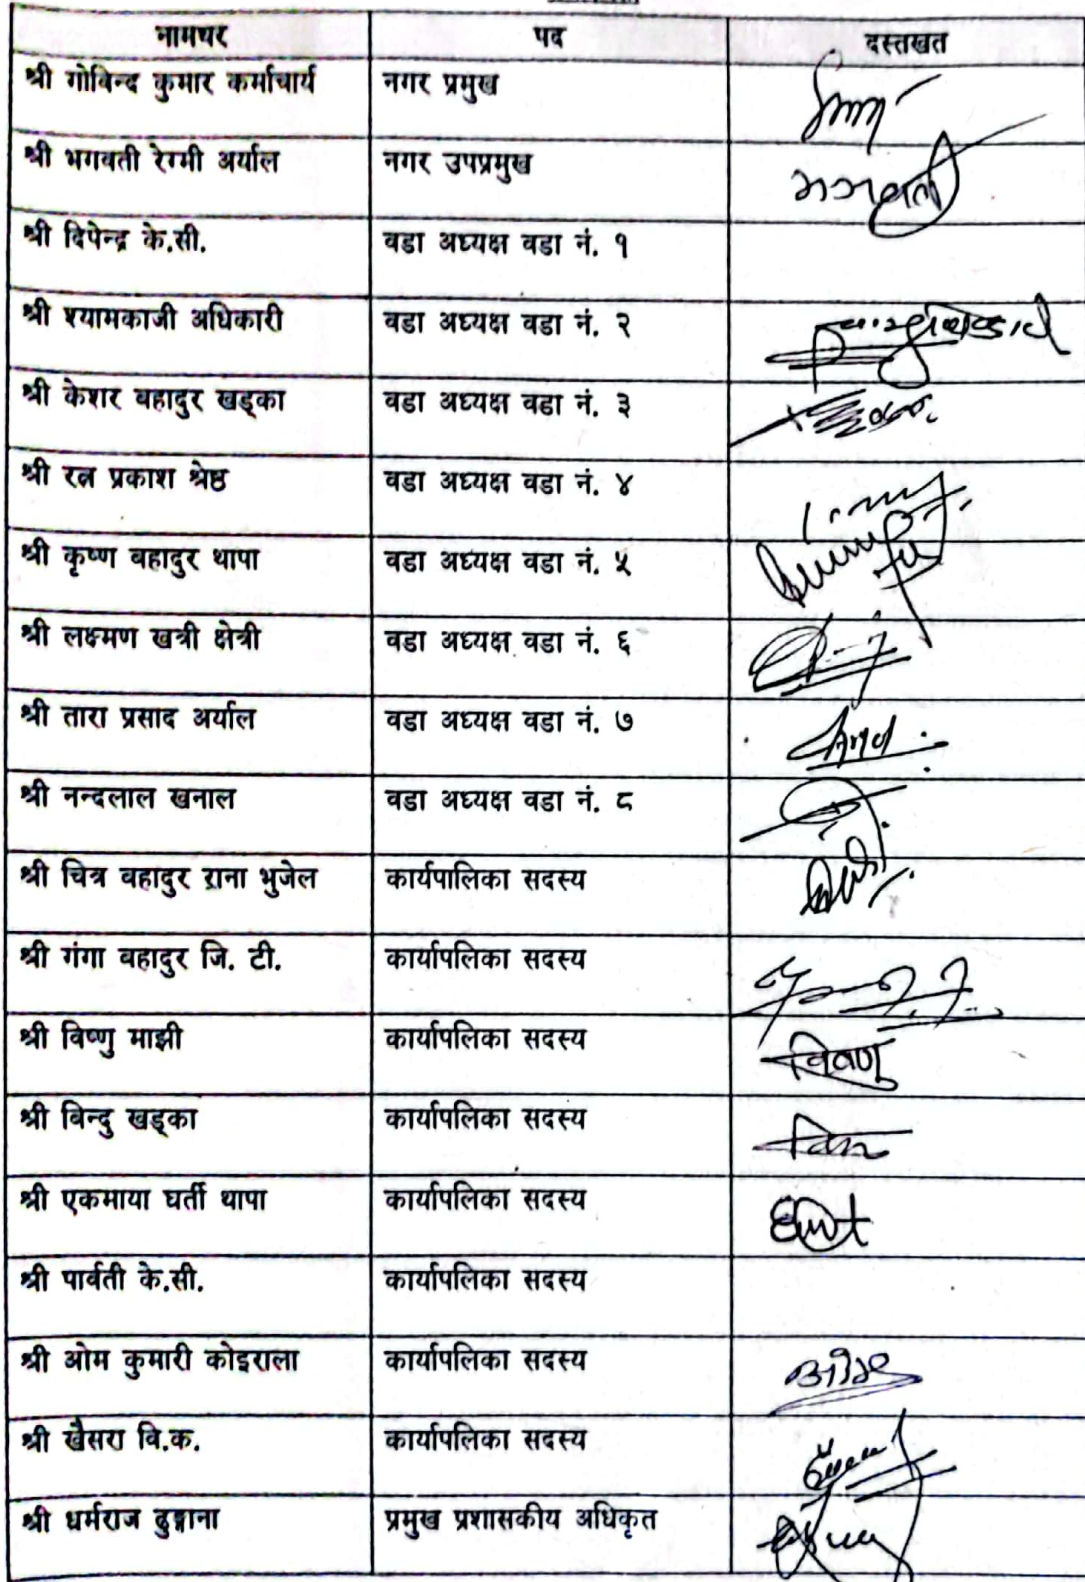 नामथर पद दस्तखत
श्री गोविन्द कुमार कर्माचार्य नगर प्रमुख
श्री भगवती रेग्मी अर्याल नगर उपप्रमुख भगवती
श्री दिपेन्द्र के.सी. वडा अध्यक्ष वडा नं. १
श्री श्यामकाजी अधिकारी वडा अध्यक्ष वडा नं. २
श्री केशर बहादुर खड्का वडा अध्यक्ष वडा नं. ३
श्री रत्न प्रकाश श्रेष्ठ वडा अध्यक्ष वडा नं. ४
श्री कृष्ण बहादुर थापा वडा अध्यक्ष वडा नं. ५
श्री लक्ष्मण खत्री क्षेत्री वडा अध्यक्ष वडा नं. ६
श्री तारा प्रसाद अर्याल वडा अध्यक्ष वडा नं. ७
श्री नन्दलाल खनाल वडा अध्यक्ष वडा नं. ८
श्री चित्र बहादुर राना भुजेल कार्यपालिका सदस्य
श्री गंगा बहादुर जि. टी. कार्यापलिका सदस्य
श्री विष्णु माझी कार्यापलिका सदस्य विष्णु
श्री बिन्दु खड्का कार्यापलिका सदस्य
श्री एकमाया घर्ती थापा कार्यापलिका सदस्य
श्री पार्वती के.सी. कार्यापलिका सदस्य
श्री ओम कुमारी कोइराला कार्यापलिका सदस्य ओम
श्री खैसरा वि.क. कार्यापलिका सदस्य
श्री धर्मराज ढुङ्गाना प्रमुख प्रशासकीय अधिकृत